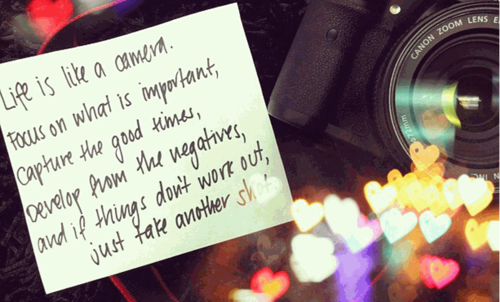 Life is like a camera.
Focus on what is important,
capture the good times,
Develop from the negatives,
and if things don't work out,
just take another shot.
CANON ZOOM LENS